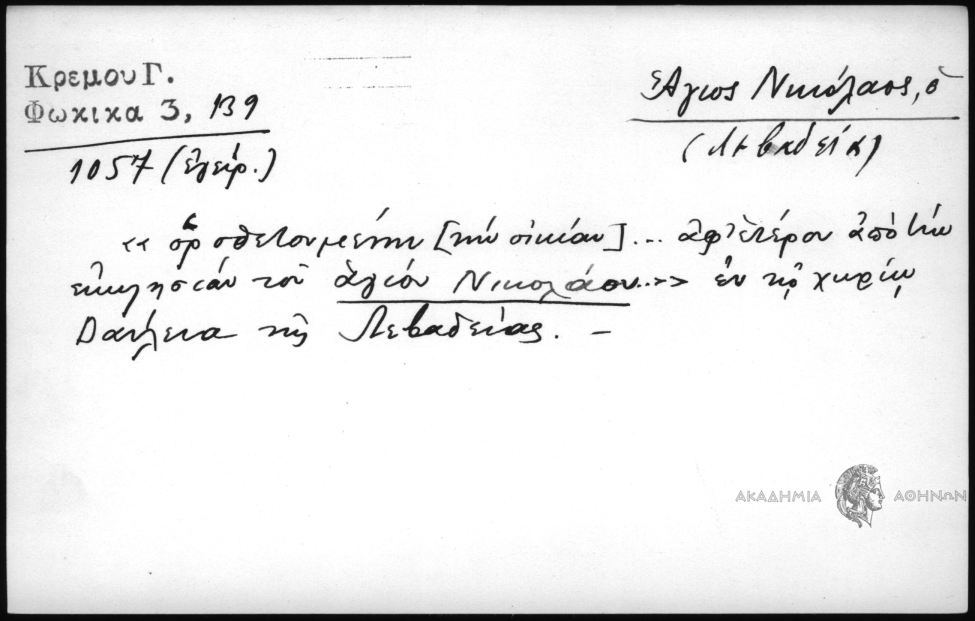 Κρεμου Γ.
Φωκικα 3, 139
1057 (ἔγγρ.)
Ἅγιος Νικόλαος, ὁ
(Λεβαδεία)
«ὁροθετουμένην [τὴν οἰκίαν] ... ἀφ' ἑτέρου ἀπὸ τὴν
ἐκκλησίαν τοῦ ἁγίου Νικολάου...» ἐν τῷ χωρίῳ
Δαύλεια τῆς Λεβαδείας. –
ΑΚΑΔΗΜΙΑ ΑΘΗΝΩΝ